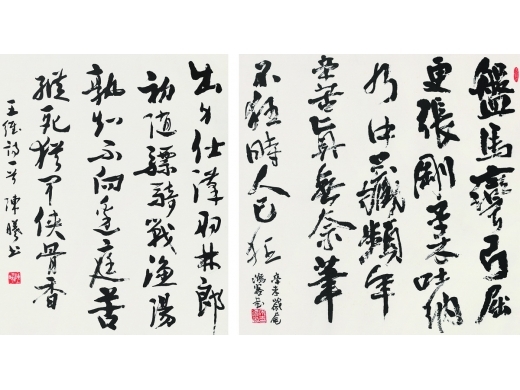 盤馬彎弓屈
更張剛柔吐納
中藏頻年
辛苦真無奈筆
不時人已狂
出身仕漢羽林郎
初隨驃騎戰漁陽
孰知不向邊庭苦
縱死猶聞俠骨香
王維詩一首 陳書